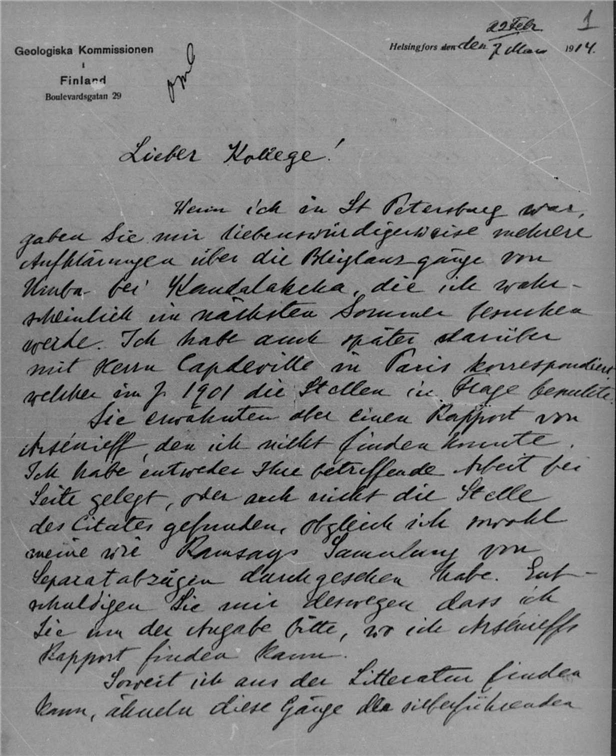 1
Geologiska Kommissionen
i
Finland
Boulevardsgatan 29
22 Feb.
Helsingfors den den 7 Mars 1914.
Lieber Kollege!
Wenn ich in St Petersburg war,
gaben Sie mir liebenswürdigerweise mehrere
Aufklärungen über die Bleiglanzgänge von
Umba bei Kandalakscha, die ich wahr-
scheinlich im nächsten Sommer besuchen
werde. Ich habe auch später darüber
mit Herrn Capdeville in Paris korrespondiert
welcher im J. 1901 die Stellen in Frage besuchte.
Sie erwähnten aber einen Rapport von
Arsénieff, den ich nicht finden konnte.
Ich habe entweder Ihre betreffende Arbeit bei
Seite gelegt, oder auch nicht die Stelle
des Citates gefunden, obgleich ich sowohl
meine wie Ramsays Sammlung von
Separatabzügen durchgesehen habe. Ent-
schuldigen Sie mir deswegen dass ich
Sie um der Angabe bitte, wo ich Arsénieffs
Rapport finden kann.
Soweit ich aus der Litteratur finden
kann, ähneln diese Gänge den silberführenden